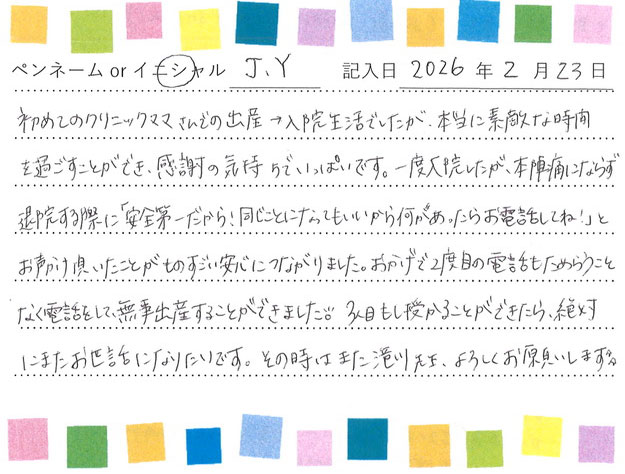 ペンネーム or イニシャル J.Y 記入日 2026 年 2 月 23 日
初めてのクリニックママさんでの出産→入院生活でしたが、本当に素敵な時間
を過ごすことができ、感謝の気持ちでいっぱいです。一度入院したが、本陣痛にならず
退院する際に「安全第一だから！同じことになってもいいから何があったらお電話してね！」と
お声かけ頂いたことがものすごい安心につながりました。おかげで2度目の電話もためらうこと
なく電話をして、無事出産することができました!! 3人目もし授かることができたら、絶対
にまたお世話になりたいです。その時はまた滝川先生、よろしくお願いします